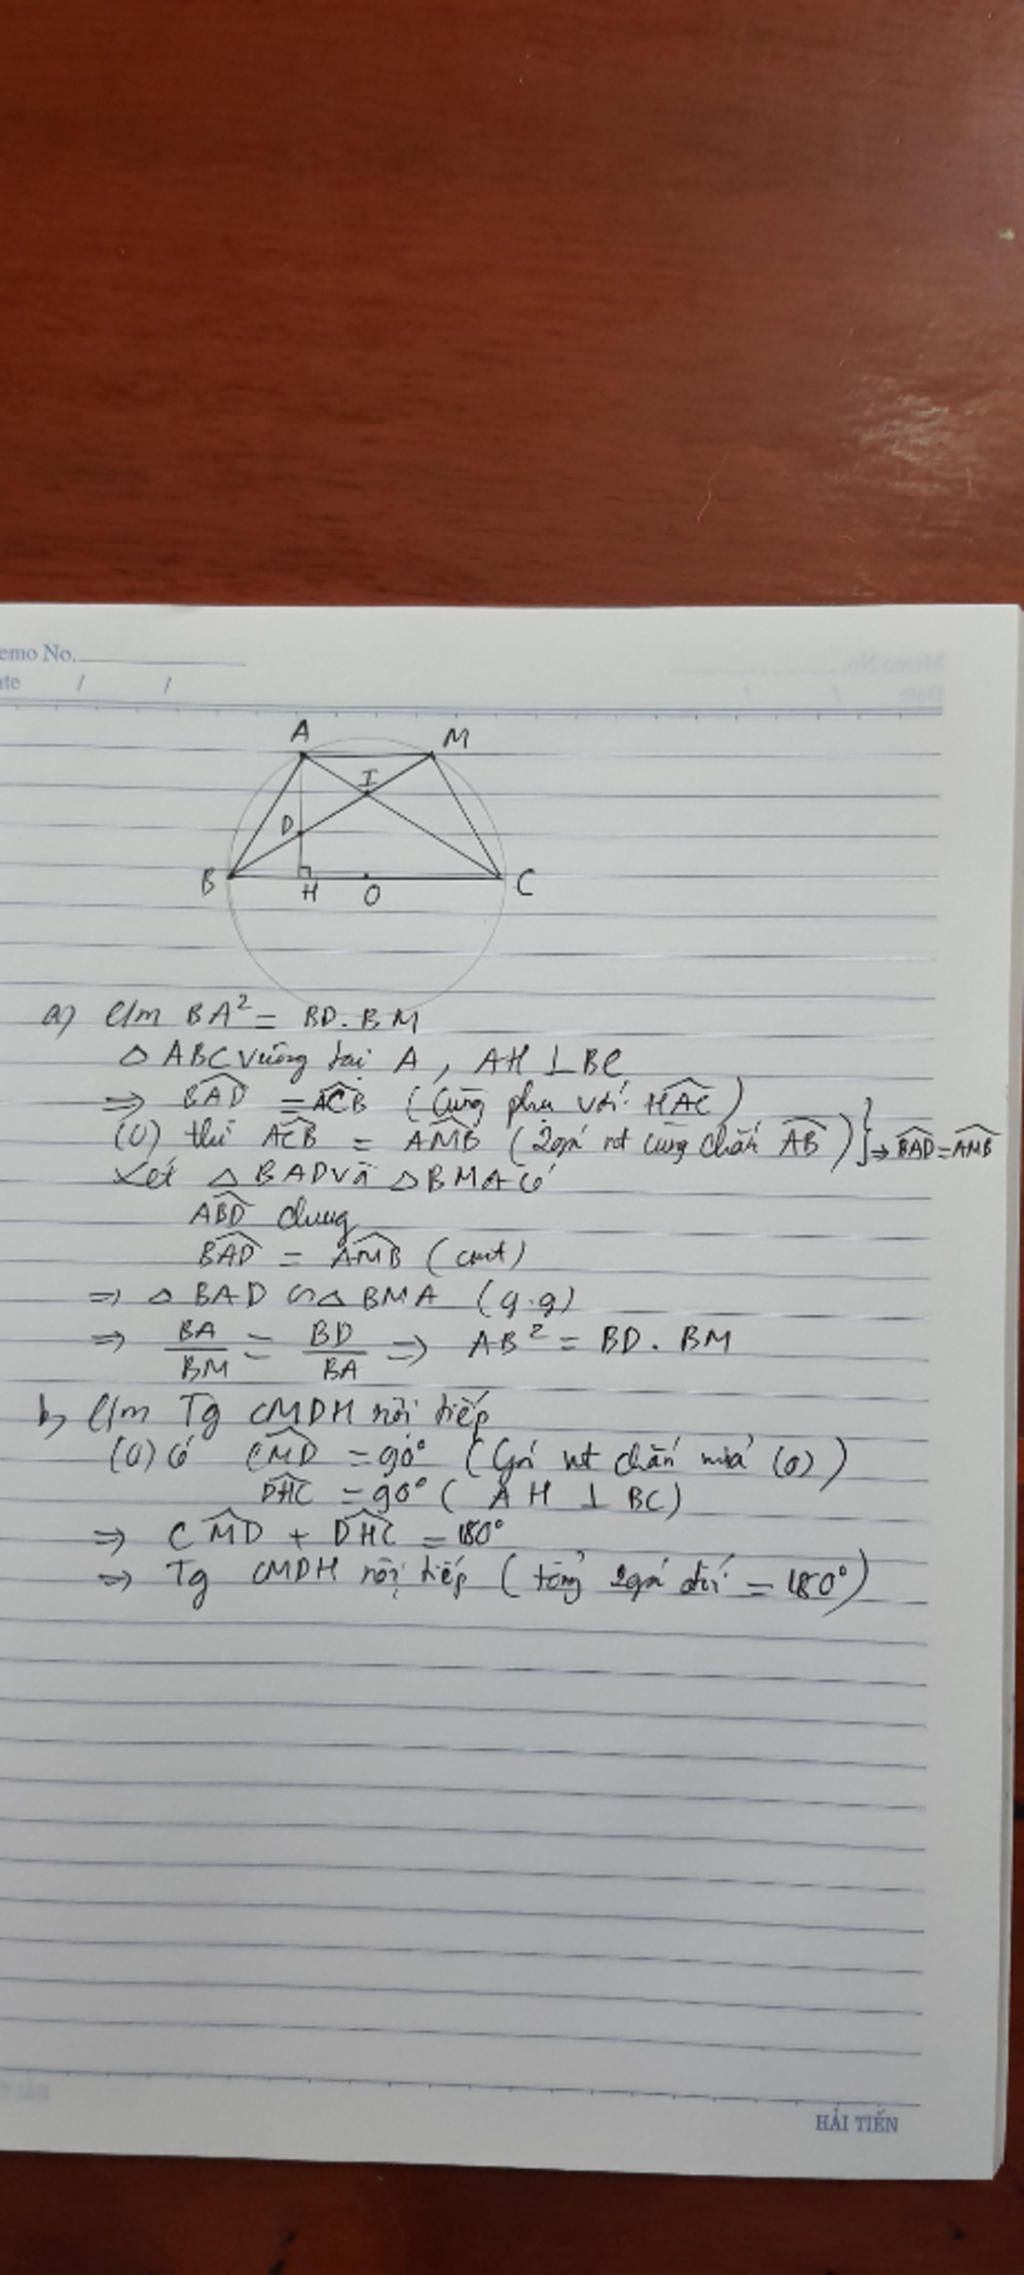 emo No.
ate / /
A M
I
D
B H O C
a) C/m BA² = BD. BM
△ ABC vuông tại A, AH ⊥ BC
=> \widehat{BAD} = \widehat{ACB} (Cùng phụ với \widehat{HAC})
(O) thì \widehat{ACB} = \widehat{AMB} (2 góc nt cùng chắn \widehat{AB}) } => \widehat{BAD} = \widehat{AMB}
Xét △ BAD và △ BMA có
\widehat{ABD} chung
\widehat{BAD} = \widehat{AMB} (cmt)
=> △ BAD ∽ △ BMA (g.g)
=> BA/BM = BD/BA => AB² = BD. BM
b) C/m Tg CMDH nội tiếp
(O) có \widehat{CMD} = 90° (Góc nt chắn nửa (O))
\widehat{DHC} = 90° (AH ⊥ BC)
=> \widehat{CMD} + \widehat{DHC} = 180°
=> Tg CMDH nội tiếp (tổng 2 góc đối = 180°)
HẢI TIẾN